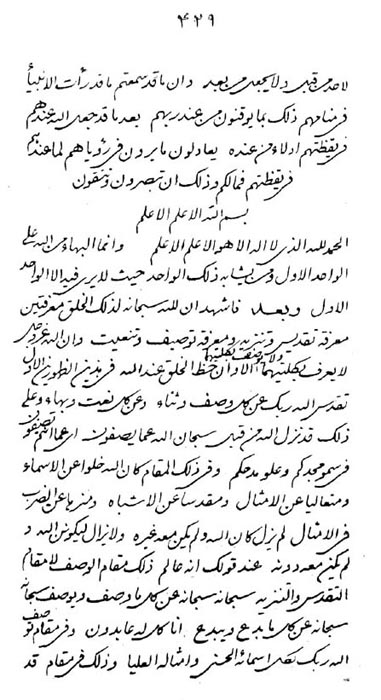 ٤٢٩
لاحد من قبل ولا يجعل من بعد وان ما قد سمعتم ما قد رأت الانبياء
فى منامهم ذلك بما يوقنون من عند ربهم بعد ما قد جعل الله عندهم
فى يقظتهم ادلاء من عنده يعادلون ما يرون فى رؤياهم لما عندهم
فى يقظتهم فما لكم وذلك ان تبصرون وتتقون
بسم الله الاعلم الاعلم
الحمد لله الذى لا اله الا هو الاعلم الاعلم وانما البهاء من الله على
الواحد الاول ومن يشابه ذلك الواحد حيث لا يرى فيه الا الواحد
الاول وبعد فاشهد ان لله سبحانه لذلك الخلق معرفتين
معرفة تقديس وتنزيه ومعرفة توصيف وتنعيت وان الله عز وجل
لا يعرف بكلتيهما ولا يوصف بكلتيهما الا وان حظ الخلق عند الله فى هذين الظهورين الاول
تقدس الله ربك عن كل وصف وثناء وعن كل نعت وبهاء وعلى
ذلك قد نزل الله من قبل سبحان الله عما يصفون اى عما انتم تصفون
فى سمو مجدكم وعلو مدحكم وفى ذلك المقام كان الله خلوا عن الاسماء
ومتعاليا عن الامثال ومقدسا عن الاشباه ومنزها عن الضرب
فى الامثال لم يزل كان الله ولم يكن معه غيره ولا يزال ليكونن الله و
لم يكن معه دونه عند قولك انه عالم ذلك مقام الوصف لا مقام
التقديس والتنزيه سبحانه سبحانه عن كل ما وصف ويوصف سبحانه
سبحانه عن كل ما بدع ويبدع انا كل له عابدون وفى مقام توصف
الله ربك بكل اسمائه الحسنى وامثاله العليا وذلك فى مقام قد